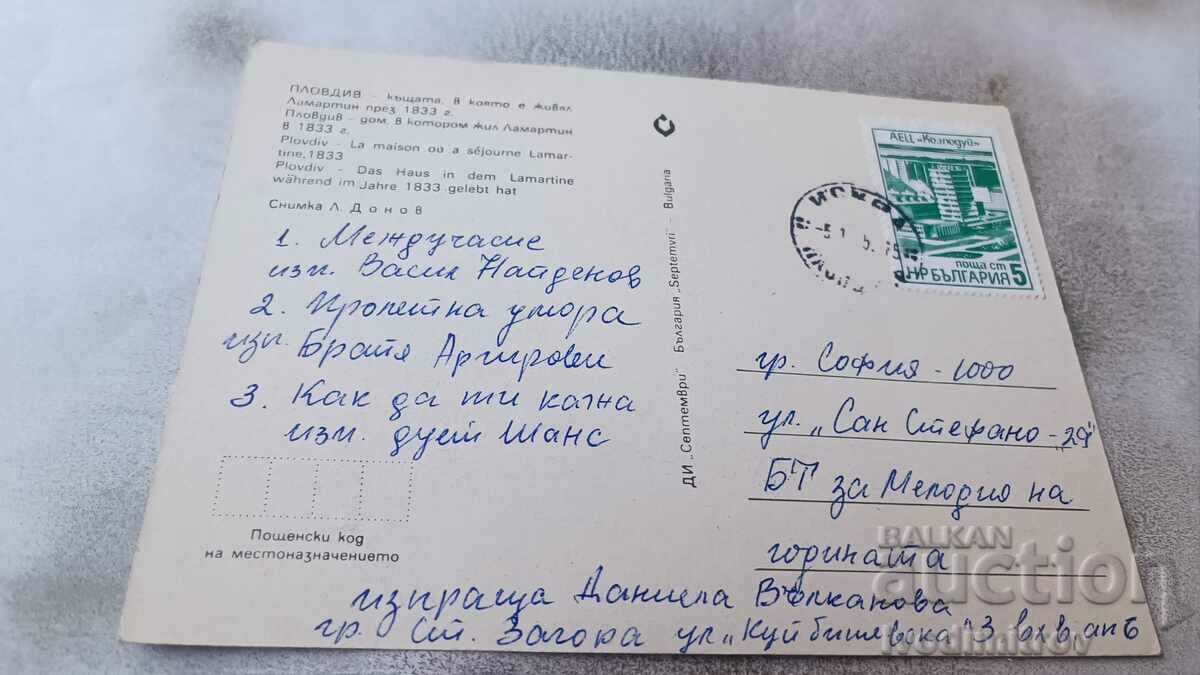 ПЛОВДИВ - къщата, в която е живял
Ламартин през 1833 г.
Пловдив - дом, в котором жил Ламартин
в 1833 г.
Plovdiv - La maison où a séjourne Lamar-
tine, 1833
Plovdiv - Das Haus in dem Lamartine
während im Jahre 1833 gelebt hat
Снимка Л. Донов
1. Междучасие
изп. Васил Найденов
2. Пролетна умора
изп. Братя Аргирови
3. Как да ти кажа
изп. дует Шанс
Пощенски код
на местоназначението
ДИ „Септември" България „Septemvri" - Bulgaria
АЕЦ „Козлодуй"
поща ст
НР БЪЛГАРИЯ 5
гр. София - 1000
ул. „Сан Стефано - 29"
БТ за Мелодия на
годината
изпраща Даниела Вълканова
гр. Ст. Загора ул „Куйбишевска" 3 вх В, ап 6
BALKAN
auction
ivodimitrov